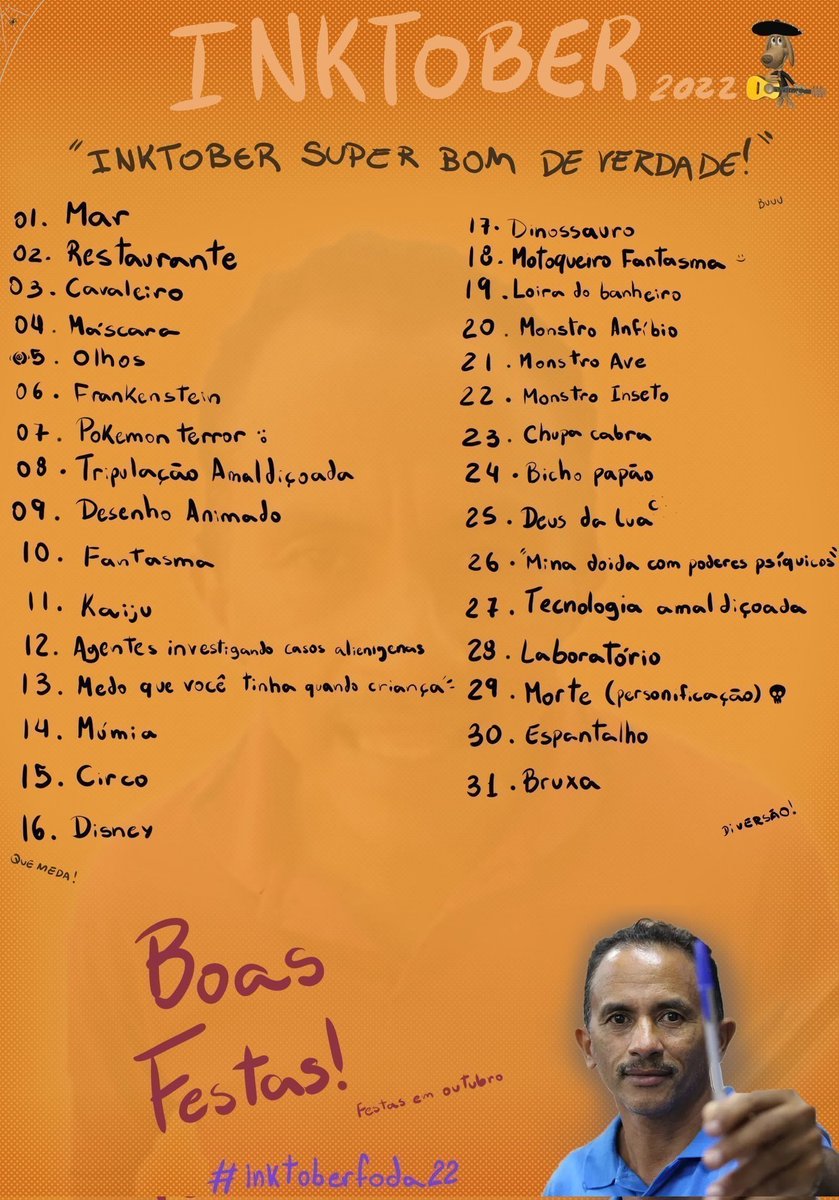 INKTOBER 2022
"INKTOBER SUPER BOM DE VERDADE!"
BUUU
01. Mar
02. Restaurante
03. Cavaleiro
04. Máscara
05. Olhos
06. Frankenstein
07. Pokemon terror
08. Tripulação Amaldiçoada
09. Desenho Animado
10. Fantasma
11. Kaiju
12. Agentes investigando casos alienigenas
13. Medo que você tinha quando criança
14. Múmia
15. Circo
16. Disney
QUE MEDA!
17. Dinossauro
18. Motoqueiro Fantasma :)
19. Loira do banheiro
20. Monstro Anfíbio
21. Monstro Ave
22. Monstro Inseto
23. Chupa cabra
24. Bicho papão
25. Deus da Lua
26. "Mina doida com poderes psíquicos"
27. Tecnologia amaldiçoada
28. Laboratório
29. Morte (personificação)
30. Espantalho
31. Bruxa
DIVERSÃO!
Boas
Festas!
Festas em outubro
#inktoberfoda22